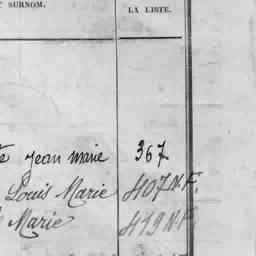 SURNOM.
LA LISTE.
jean marie 367
Louis Marie 407 N.F.
Marie 419 N.F.